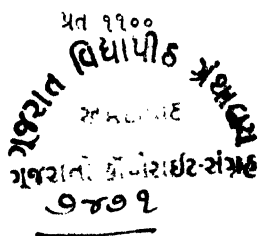 પ્રત ૧૧૦૦
ગૂજરાત વિદ્યાપીઠ ગ્રંથાલય
અમદાવાદ
ગૂજરાતી કૉપીરાઇટ-સંગ્રહ
૭૪૭૧